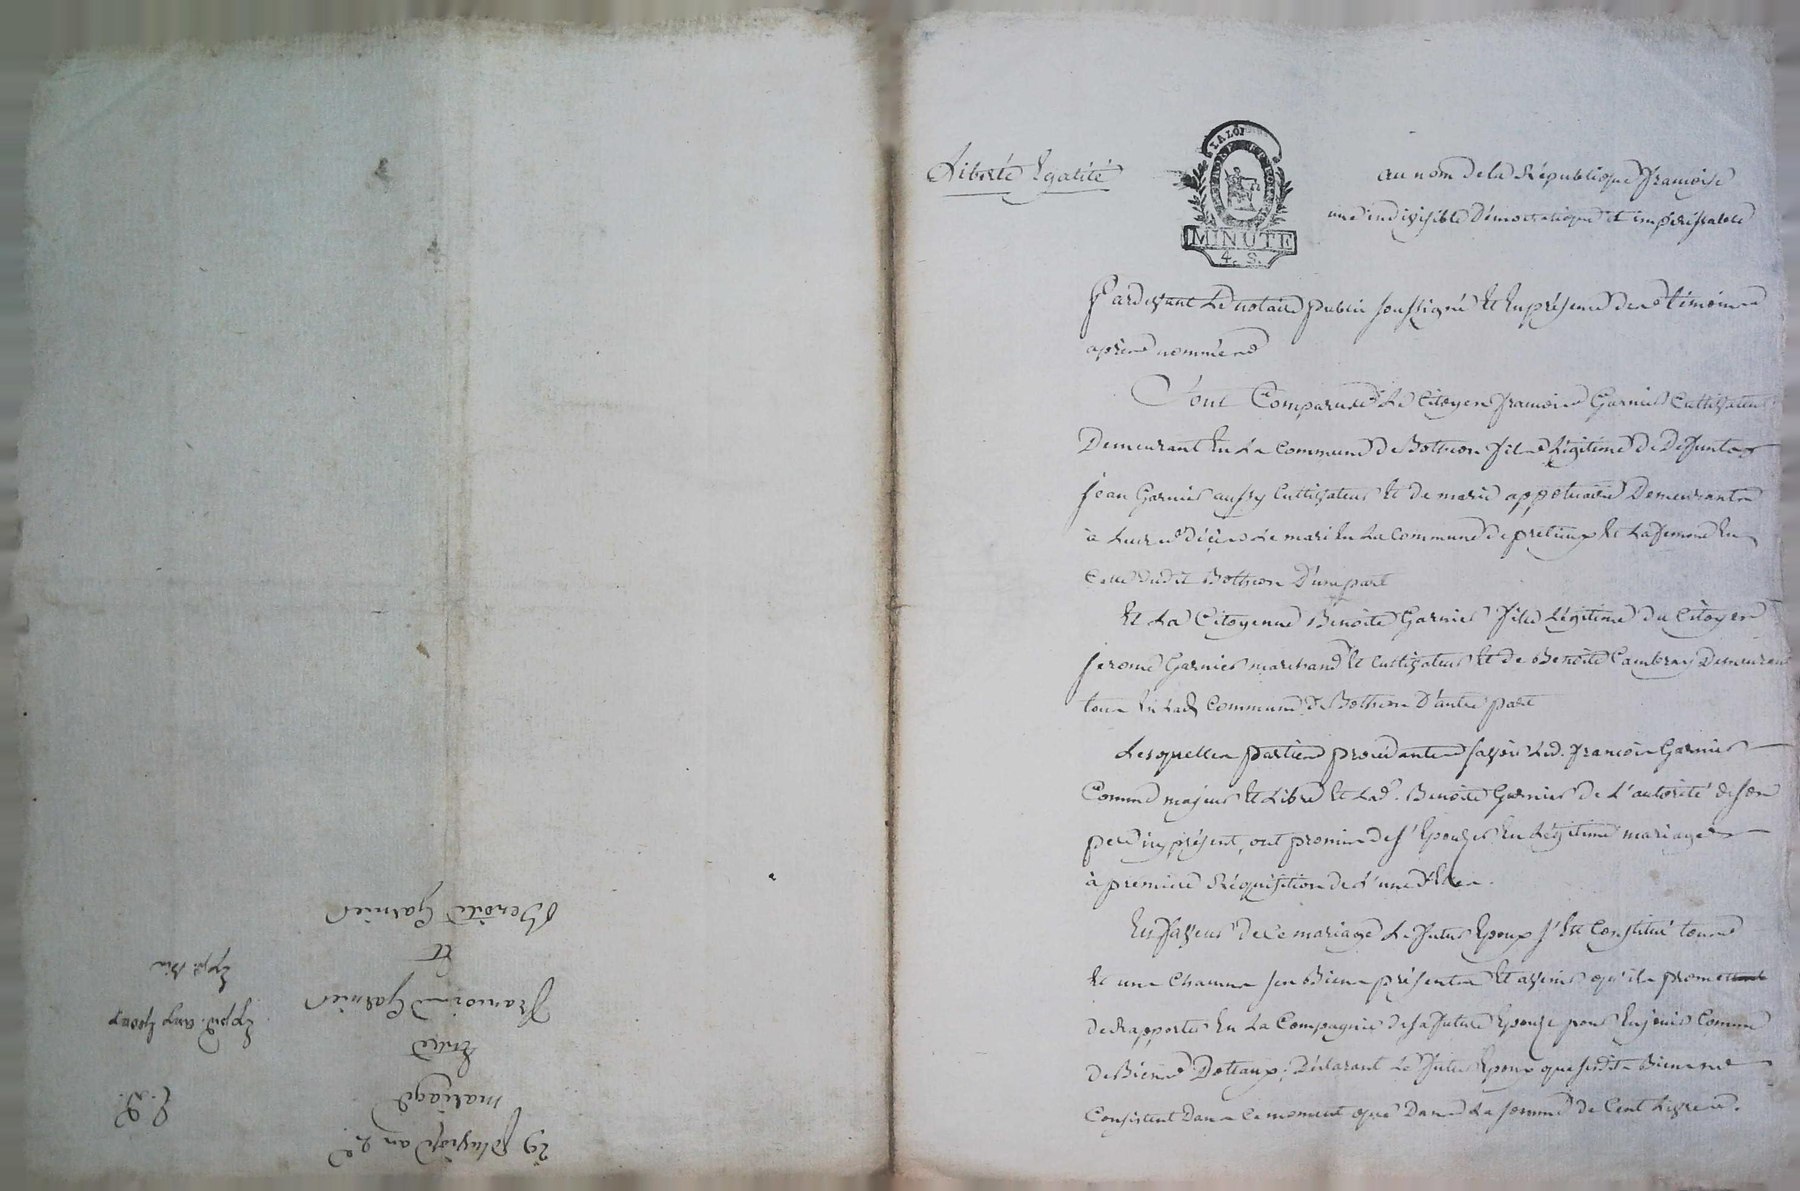 Liberté Égalité
LA LOI
MINUTE
4. S.
au nom de la République françoise
une indivisible Démocratique et impérissable
Pardevant Le notaire public soussigné Et En présence des témoins
après nommés
Sont Comparus Le Citoyen françois Garnier Cultivateur
Demeurant En La Commune de Bothéon fils Légitime de Deffunts
jean Garnier aussy Cultivateur Et de marie Demeurants
à Leurs décès Le mari En La Commune de pretieux Et La femme En
Celle dudit Bothéon D'une part
Et La Citoyenne Benoite Garnier fille Légitime du Citoyen
jerome Garnier marchand Et Cultivateur Et de Benoite Cambray Demeurant
tous En Lad. Commune de Bothéon D'autre part
Lesquelles parties procédantes savoir Led. françois Garnier
Comme majeur Et Libre Et Lad. Benoite Garnier de L'autorité de son
pere icy présent, ont promis de s'Epouser En Légitime mariage
à premiere Réquisition de L'une D'Elles.
En faveur de Ce mariage Le futur Epoux s'Est Constitué tous
Et uns Chacuns ses Biens présents Et avenir qu'il promet
de Rapporter En La Compagnie de sa future Epouse pour En jouir Comme
de Biens Dotaux; Déclarant Le futur Epoux que sesdits Biens ne
Consistent Dans Ce moment que Dans La somme de Cent Livres.
29 pluviose an 2e
mariage
Entre
françois Garnier
Et
Benoite Garnier
Exppd. aux Epoux